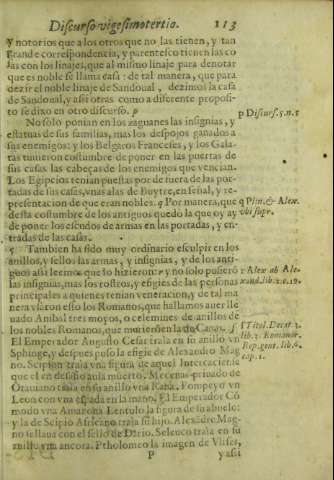 Discurso vigesimotertio. 113
y notorios que a los otros que no las tienen, y tan
grande correspondencia, y parentesco tienen las co
sas con los linajes, que al mismo linaje para denotar
que es noble se llama casa: de tal manera, que para
dezir el noble linaje de Sandoual, dezimos la casa
de Sandoual, y assi otras como a diferente proposi-
to se dixo en otro discurso. p
p Discurs. 5. n. 5
No solo ponian en los zaguanes las insignias, y
estatuas de sus familias, mas los despojos ganados a
sus enemigos: y los Belgaros Franceses, y los Gala-
tas tuuieron costumbre de poner en las puertas de
sus casas las cabeças de los enemigos que vencian.
Los Egipcios tenian puestas por de fuera de las por-
tadas de sus casas, vnas alas de Buytre, en señal, y re-
presentacion de que eran nobles. q Por manera, que
q Plin. & Alex.
desta costumbre de los antiguos quedò la que oy ay
vbi supr.
de poner los escudos de armas en las portadas, y en-
tradas de las casas.
Tambien ha sido muy ordinario esculpir en los
anillos, y sellos las armas, y insignias, y de los anti-
guos assi leemos que lo hizieron: r y no solo pusierō
r Alex ab Ale-
las insignias, mas los rostros, y efigies de las personas
xand. lib. 2. c. 19.
principales a quienes tenian veneracion, y de tal ma
nera vsaron esto los Romanos, que hallamos auer lle
uado Anibal tres moyos, o celemines de anillos de
los nobles Romanos, que murieron en la de Canas. s
s Tit. ol. Decat 3.
El Emperador Augusto Cesar traìa en su anillo vn
lib. 3. Romanor.
Sphinge, y despues puso la efigie de Alexandro Mag
Rep. gent. lib. 6.
no. Scipion traìa vna figura de aquel
cap. 1.
que el en desafio auia muerto. Mecenas priuado de
Octauiano traìa en su anillo vna Rana. Pompeyo vn
Leon con vna espada en la mano. El Emperador Cò
modo vna Amazona. Lentulo la figura de su abuelo:
y la de Scipio Africano traìa su hijo. Alexadro Mag-
no sellaua con el sello de Dario. Seleuco traìa en su
anillo vna ancora. Ptholomeo la imagen de Vlises,
P y assi